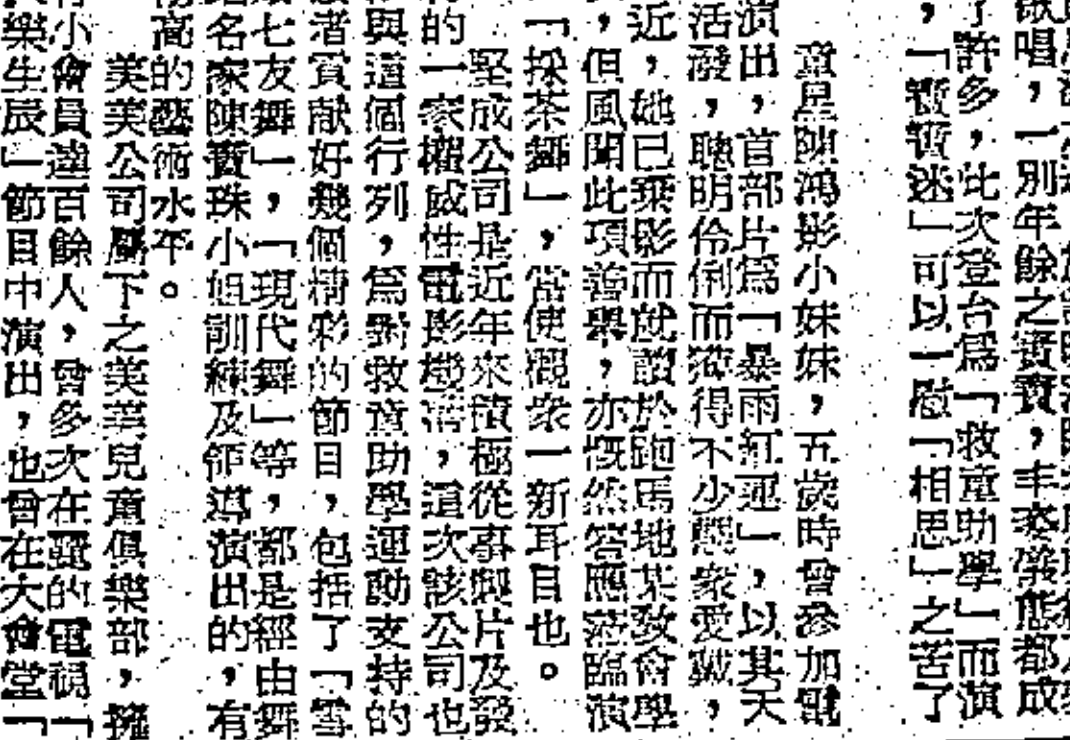 歌唱，一別年餘之寶寶，丰姿儀態都成
了許多，此次登台爲「救童助學」而演
，「寶寶迷」可以一慰「相思」之苦了
童星陳鴻影小妹妹，五歲時曾參加電
演出，首部片爲「暴雨紅蓮」，以其天
活潑，聰明伶俐而獲得不少觀衆愛戴，
近，她已棄影而就讀於跑馬地某教會學
，但風聞此項善舉，亦慨然答應蒞臨演
「採茶舞」，當使觀衆一新耳目也。
堅成公司是近年來積極從事製片及發
的一家權威性電影機構，這次該公司也
與這個行列，爲對救童助學運動支持的
者貢献好幾個精彩的節目，包括了「雪
七友舞」，「現代舞」等，都是經由舞
名家陳寶珠小姐訓練及領導演出的，有
高的藝術水平。
美美公司屬下之美美兒童俱樂部，擁
小會員達百餘人，曾多次在麗的電視「
樂生辰」節目中演出，也曾在大會堂「